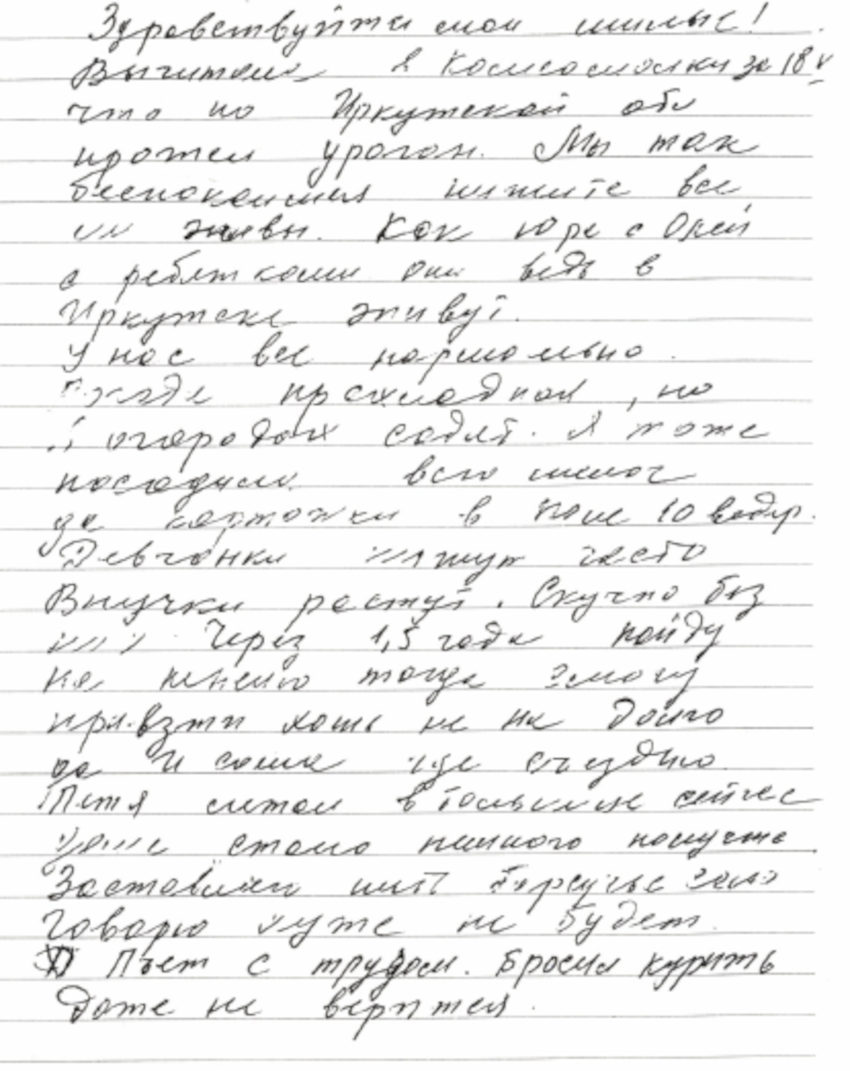 Здравствуйте мои милые!
Вычитали в Комсомолки за 18 V
что по Иркутской обл
прошел ураган. Мы так
беспокоимся пишите все
ли живы. Как Юра с Олей
с ребятками они ведь в
Иркутске живут.
У нас все нормально.
прохладная, но
огороды садят. Я тоже
посадила всю мелоч
да картошки в поле 10 ведер.
Девчонки пишут часто
Внучки растут. Скучно без
них. Через 1,5 года пойду
на пенсию тогда смогу
привзти хоть не на долго
да и сама еще съезжю
Петя лежал в больнице сейчас
стало немного получше.
Заставили пить барсучье сало
Говорю хуже не будет.
Пьет с трудом. Бросил курить
даже не верится.